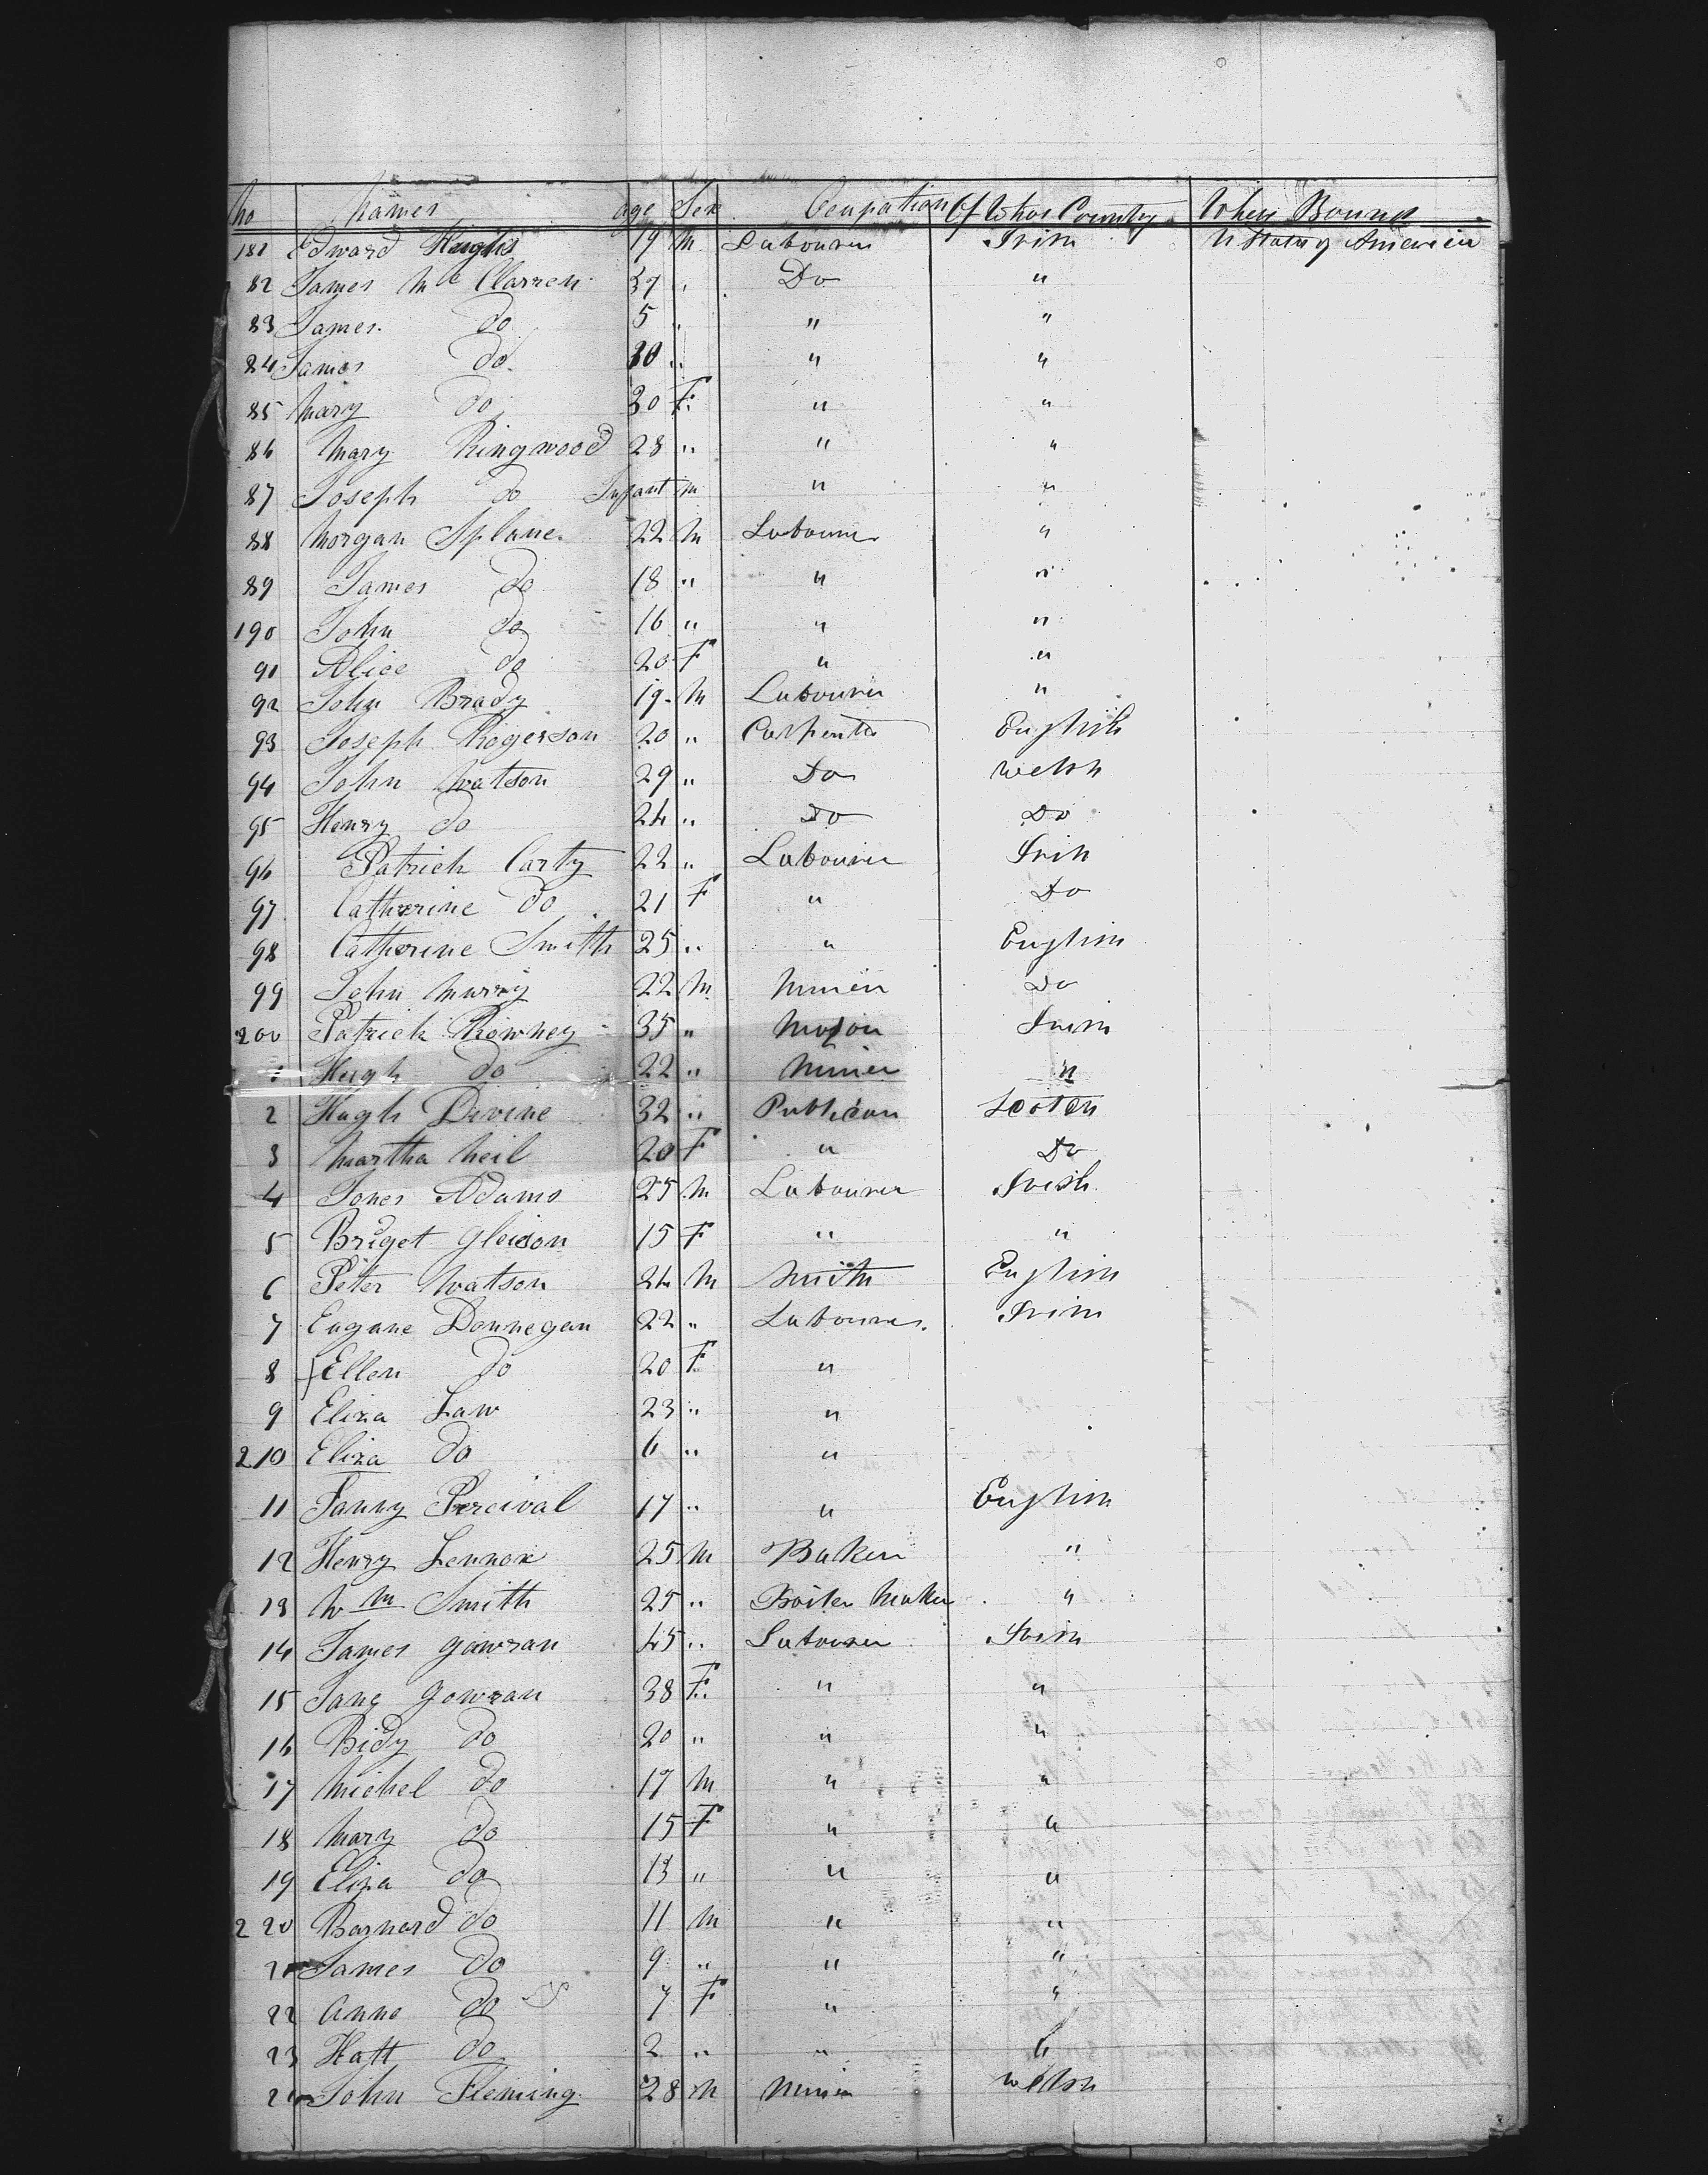 No Names age Sex Ocupation Of What Country Where Bound
181 Edward Hughs 19 M Labourer Irish U States of America
82 James Mc Clarren 37 " Do "
83 James do 5 " " "
84 James do 30 " " "
85 Mary do 30 F. " "
86 Mary Ringwood 28 " " "
87 Joseph do Infant M " "
88 Morgan Splane 22 M Labourer "
89 James Do 18 " " "
190 John do 16 " " "
91 Alice do 20 F " "
92 John Brady 19 M Labourer "
93 Joseph Rogerson 20 " Carpenter English
94 John Watson 29 " Do Welsh
95 Henry do 24 " Do Do
96 Patrick Carty 22 " Labourer Irish
97 Catherine do 21 F " Do
98 Catherine Smith 25 " " English
99 John Murry 22 M Minier Do
200 Patrick Rowney 35 " Mason Irish
1 Hugh do 22 " Minier "
2 Hugh Divine 32 " Publican Scotch
3 Martha Neil 20 F " Do
4 Jones Adams 25 M Labourer Irish
5 Briget Gleison 15 F " "
6 Peter Watson 24 M Smith English
7 Eugane Donnegan 22 " Labourer Irish
8 Ellen do 20 F "
9 Eliza Law 23 " "
210 Eliza do 6 " "
11 Fanny Percival 17 " " English
12 Henry Lennox 25 M Baker "
13 Wm Smith 25 " Boiler Maker "
14 James Gowran 45 " Labourer Irish
15 Jane Gowran 38 F. " "
16 Bidy do 20 " " "
17 Michel do 17 M " "
18 Mary do 15 F " "
19 Eliza do 13 " " "
220 Barnard do 11 M " "
21 James do 9 " " "
22 Anne do 7 F " "
23 Hatt do 2 " " "
24 John Fleming 28 M Minier Welsh